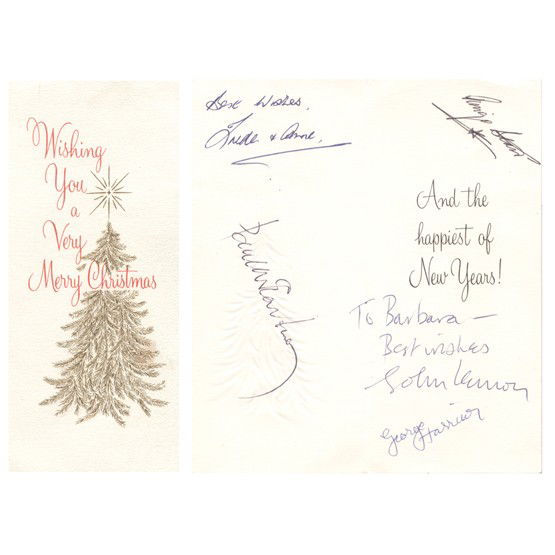 Wishing
You
a
Very
Merry Christmas
Best Wishes,
And the
happiest of
New Years!
Paul McCartney
To Barbara —
Best wishes
John Lennon
George Harrison